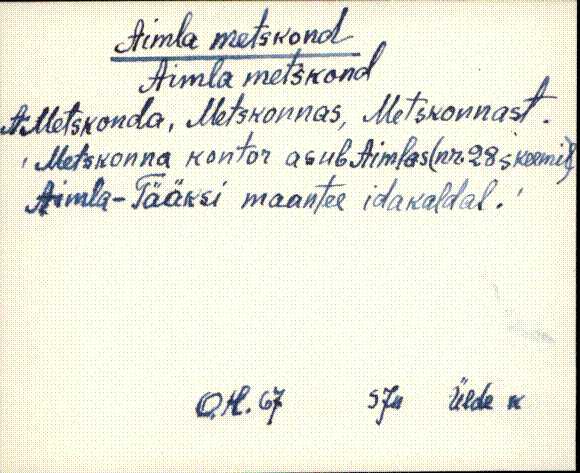 Aimla metskond
Aimla metskond
A. Metskonda, Metskonnas, Metskonnast.
' Metskonna kontor asub Aimlas (nr. 28 skeemil)
Aimla-Tääksi maantee idakaldal. '
O.H. 67 57a Ülde k